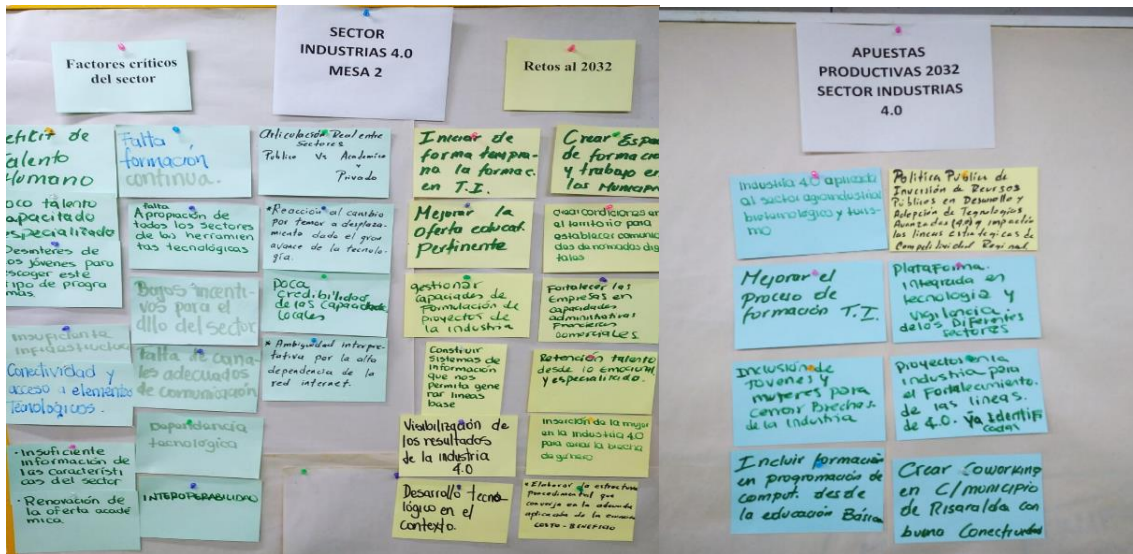 Factores críticos
del sector
SECTOR
INDUSTRIAS 4.0
MESA 2
Retos al 2032
de
Talento
Humano
poco talento
capacitado
especializado
Desinteres de
los jóvenes para
escoger este
tipo de progra
mas.
Insuficiente
infraestructura
Conectividad y
acceso a elementos
Tecnológicos.
• Insuficiente
información de
las característi
cas del sector
• Renovación de
la oferta acadé
mica.
Falta
formación
continua.
falta
Apropiación de
todos los sectores
de las herramien
tas tecnológicas
Bajos incenti
vos para el
dllo del sector
Falta de cana
les adecuados
de comunicación
Dependencia
tecnológica
INTEROPERABILIDAD
Articulación Real entre
Sectores
Público vs Academico
y
Privado
• Reacción al cambio
por temor a desplaza-
miento dada el gran
avance de la tecnolo-
gía.
POCA
Credibilidad
de las capacidades
locales
* Ambigüedad interpre-
tativa por la alta
dependencia de la
red internet.
Iniciar de
forma tempra-
na la formac.
en T.I.
Mejorar la
oferta educat.
pertinente
gestionar
capacidades de
Formulación de
proyectos de
la industria
Construir
sistemas de
información
que nos
permita gene
rar lineas
base
Visibilización de
los resultados
de la industria
4.0
Desarrollo tecno
lógico en el
contexto.
Crear Espa
de formació
y trabajo en
los Municip
crear condiciones en
el territorio para
establecer comunid
des denomadas dig
tales
Fortalecer las
Empresas en
capacidades
administrativas
Financieras
comerciales.
Retención talento
desde lo emocional
y especializado.
Inserción de la mujer
en la industria 4.0
para cerrar la brecha
de género
* Elaborar la estructura
procedimental que
converja en la adecuada
aplicación de la
COSTO - BENEFICIO
APUESTAS
PRODUCTIVAS 2032
SECTOR INDUSTRIAS
4.0
Industria 4.0 aplicada
al sector agroindustrial
biotecnológico y turis-
mo
Mejorar el
Proceso de
formación T.I.
Inclusión de
Jovenes y
mujeres para
cerrar Brechas
de la industria
Incluir formación
en programación de
comput. desde
la educación Básica
Politica Pública de
Inversión de Recursos
Públicos en Desarrollo y
Adopción de Tecnologías
Avanzadas (4.0) y impacto a
las lineas Estrategicas de
Competividad Regional
Plataforma.
integrada en
tecnología y
vigilancia
de los Diferentes
sectores
Proyectos en la
industria para
el Fortalecimiento.
de las lineas.
de 4.0. Ya identifi
cadas
Crear Coworking
en C/municipio
de Risaralda con
buena Conectividad